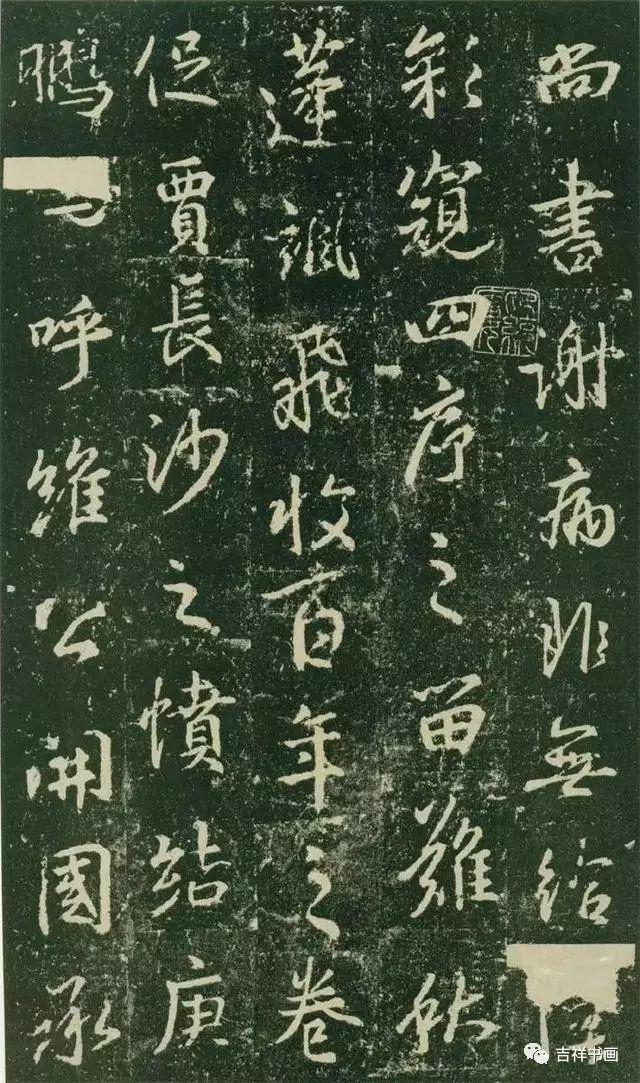 尚書謝病非無給
彩窺四序之留難秋
蓬颯飛收百年之卷
促賈長沙之憤結庚
鵬呼維公開國承
吉祥书画